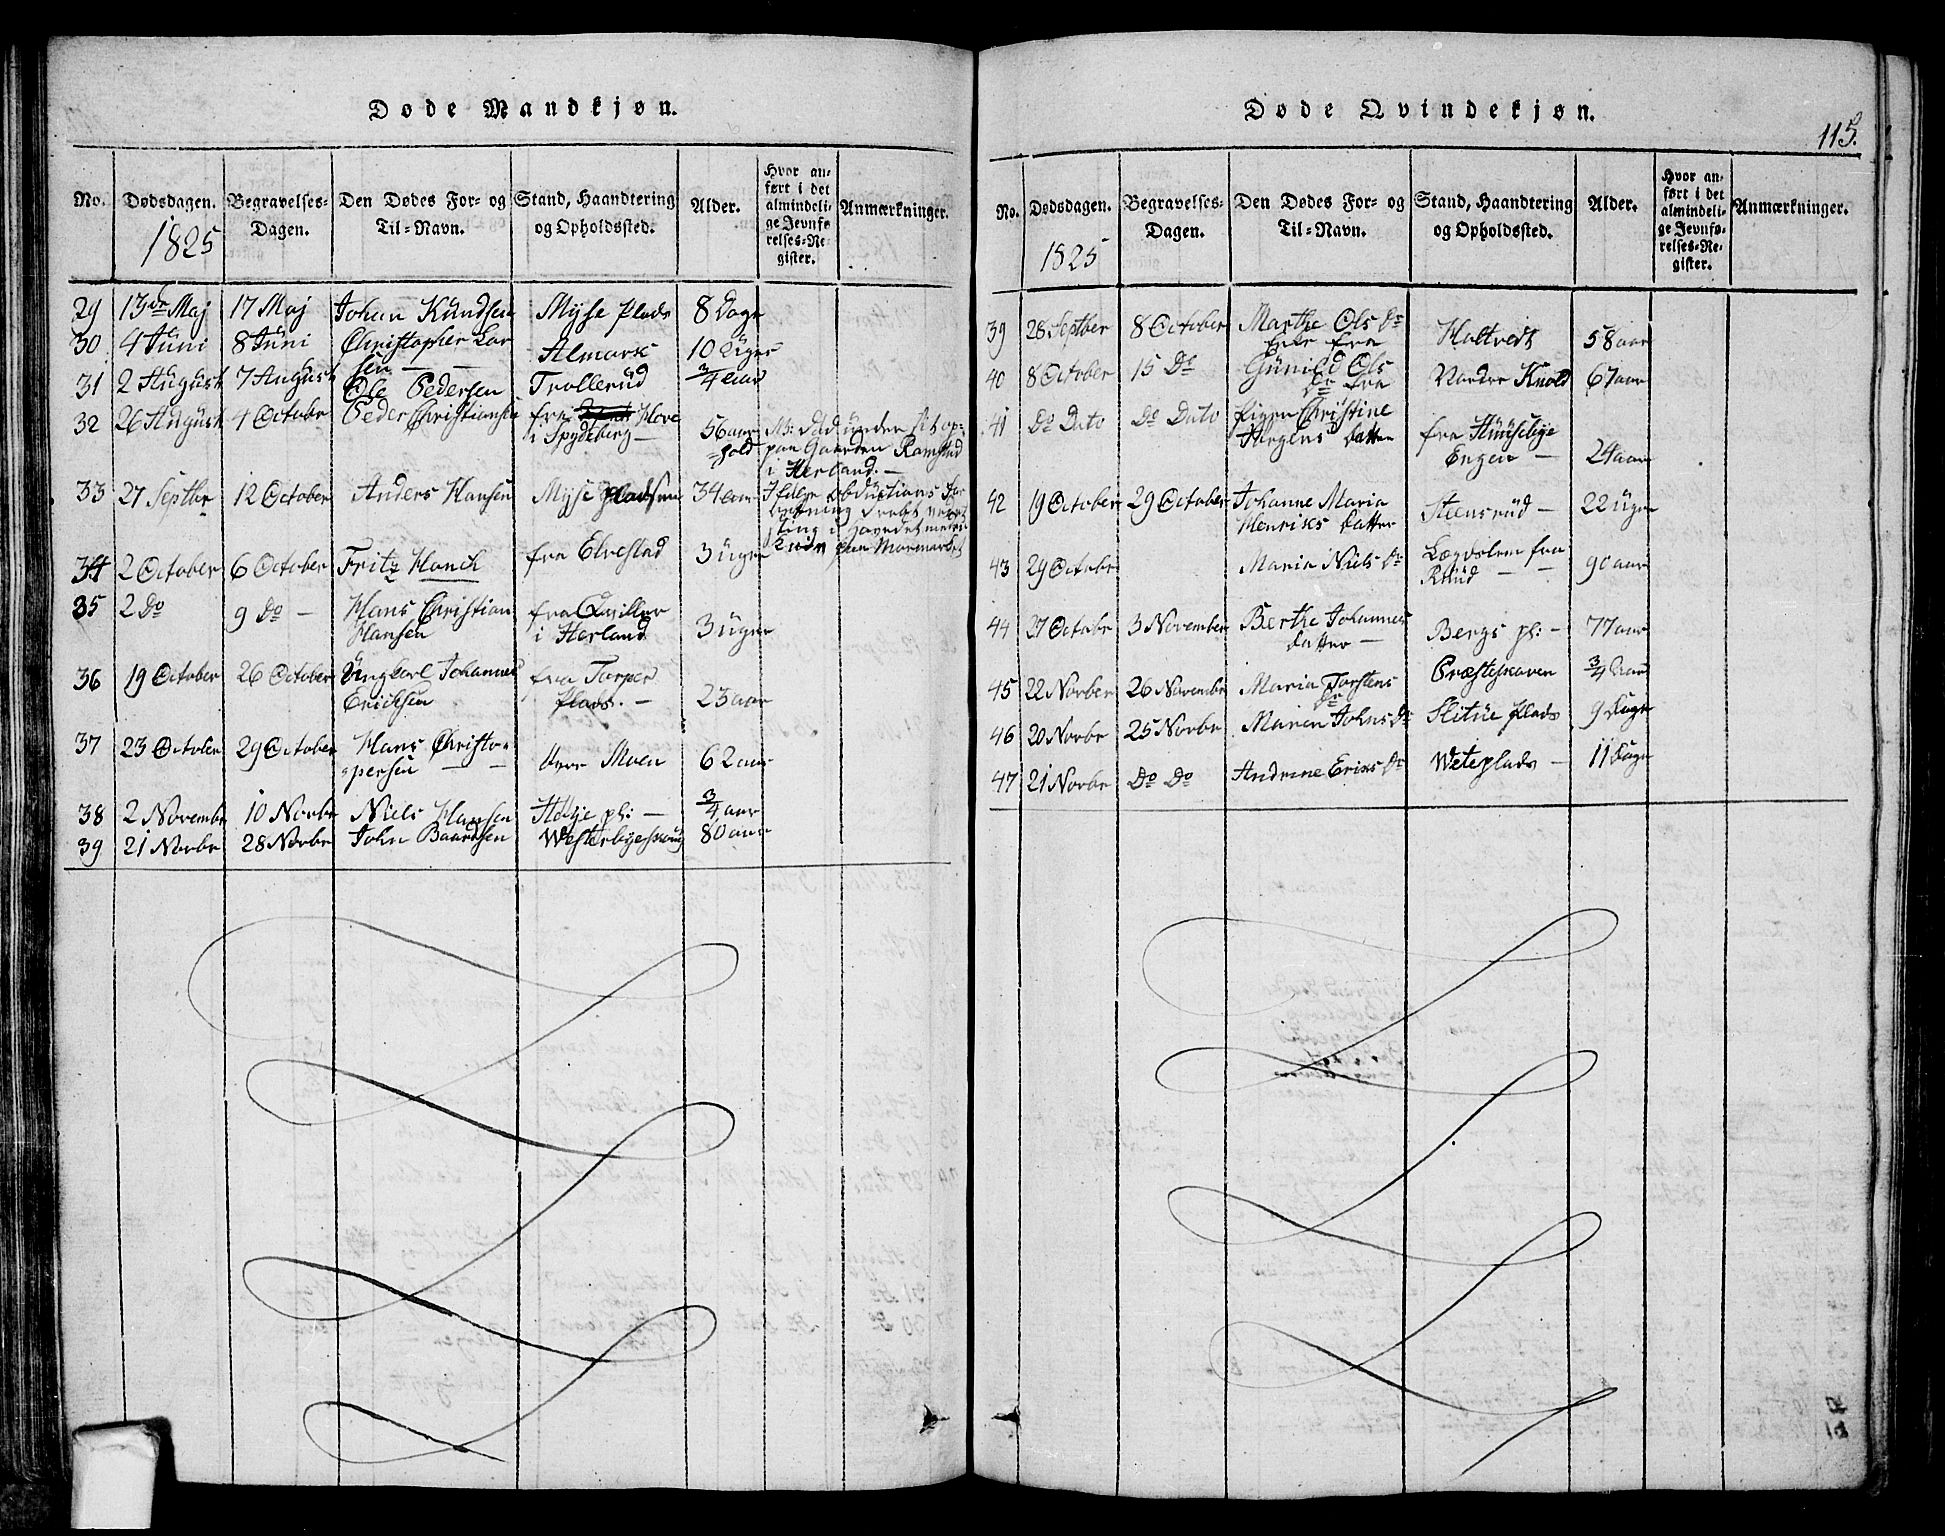 Døde Mandkjøn.
No. Dødsdagen. Begravelses-Dagen. Den Dødes For- og Til-Navn. Stand, Haandtering og Opholdssted. Alder. Hvor anført i det almindelige Jevnførelses-Register. Anmærkninger.
1825
29 13de Maj 17 Maj Johan Knudsen Mÿse Plads 8 Dage
30 4 Juni 8 Juni Christopher Lar
sen — Almark 10 Uger
31 2 August 7 August Ole Pedersen Trollerud 3/4 aar
32 26 August 4 Octobr Peder Christiansen fra Hove
i Spydeberg — 56 aar
paa Gaarden Ramstad
i Herland. —
33 27 Septbr 12 October Anders Hansen Mÿse Pladsen 34 aar Ifølge Obductions For
34 2 October 6 October Fritz Hanch fra Elvestad 3 Uger
35 2 Do 9 Do — Hans Christian
Hansen fra Qviller
i Herland 3 Uger
36 19 October 26 October Johannes
Ericksen fra Torper
Plads. — 23 aar
37 23 October 29 October Hans Christo-
phersen — Øvre Moen 62 aar
38 2 Novembr 10 Novbr Niels Hansen pl: — 3/4 aar
39 21 Novbr 28 Novbr John Baardsen 80 aar
Døde Qvindekjøn.
115.
No. Dødsdagen. Begravelses-Dagen. Den Dødes For- og Til-Navn. Stand, Haandtering og Opholdssted. Alder. Hvor anført i det almindelige Jevnførelses-Register. Anmærkninger.
1825
39 28 Septber 8 October Marthe Ols Dr
Enke fra Holtvedt 58 aar
40 8 October 15 Do Gunild Ols
Dr fra Nordre Knold 67 aar
41 Do Dato Do Dato Pigen Christine
Jørgens Datter fra
Engen — 24 aar
42 19 October 29 October Johanne Maria
Henriks Datter Steensrud — 22 Uger
43 29 Octobr Maria Niels Dr Lægdslem fra
Ruud — 90 aar
44 27 Octobr 3 November Berthe Johannes
Datter — Bergs pl: — 77 aar
45 22 Novber 26 Novembr Maria Torstens
Dr Præsteskoven 3/4 aar
46 20 Novbr 25 Novbr Maren Johns Dr Slitue Plads 9 Dage
47 21 Novbr Do Do Andrine Eriks Dr Weteplads — 11 Dage